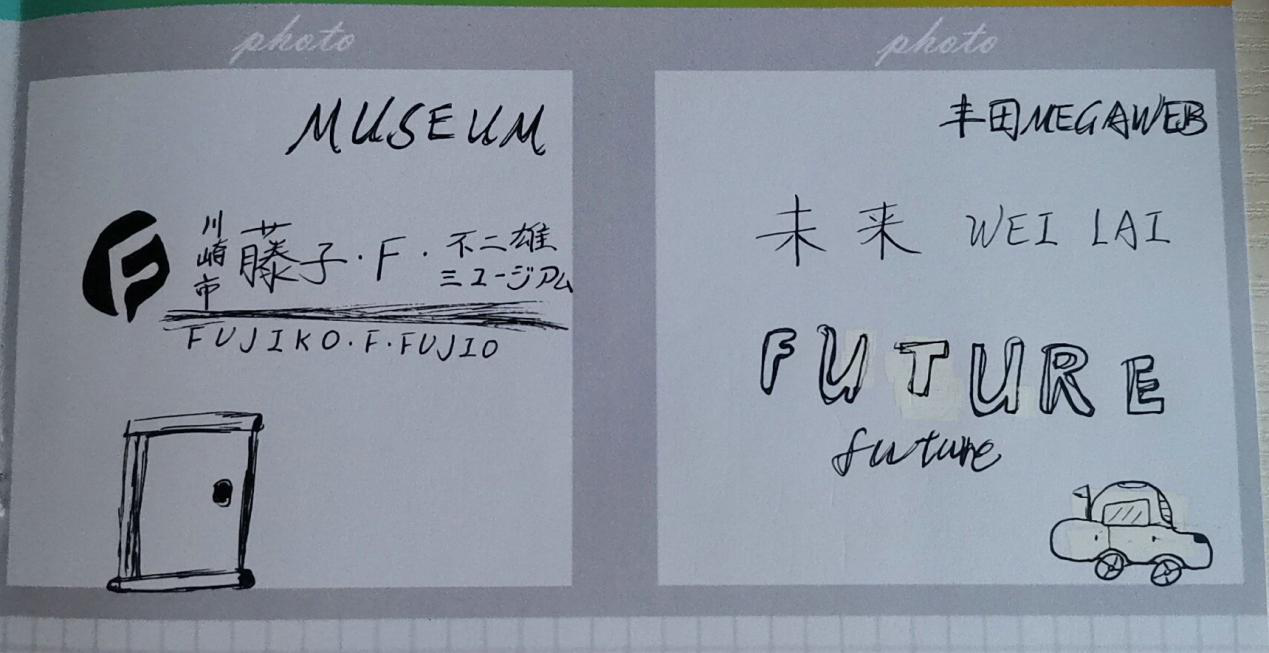 photo
MUSEUM
川崎市
藤子·F·不二雄
ミュージアム
FUJIKO·F·FUJIO
photo
丰田MEGAWEB
未来 WEI LAI
FUTURE
future